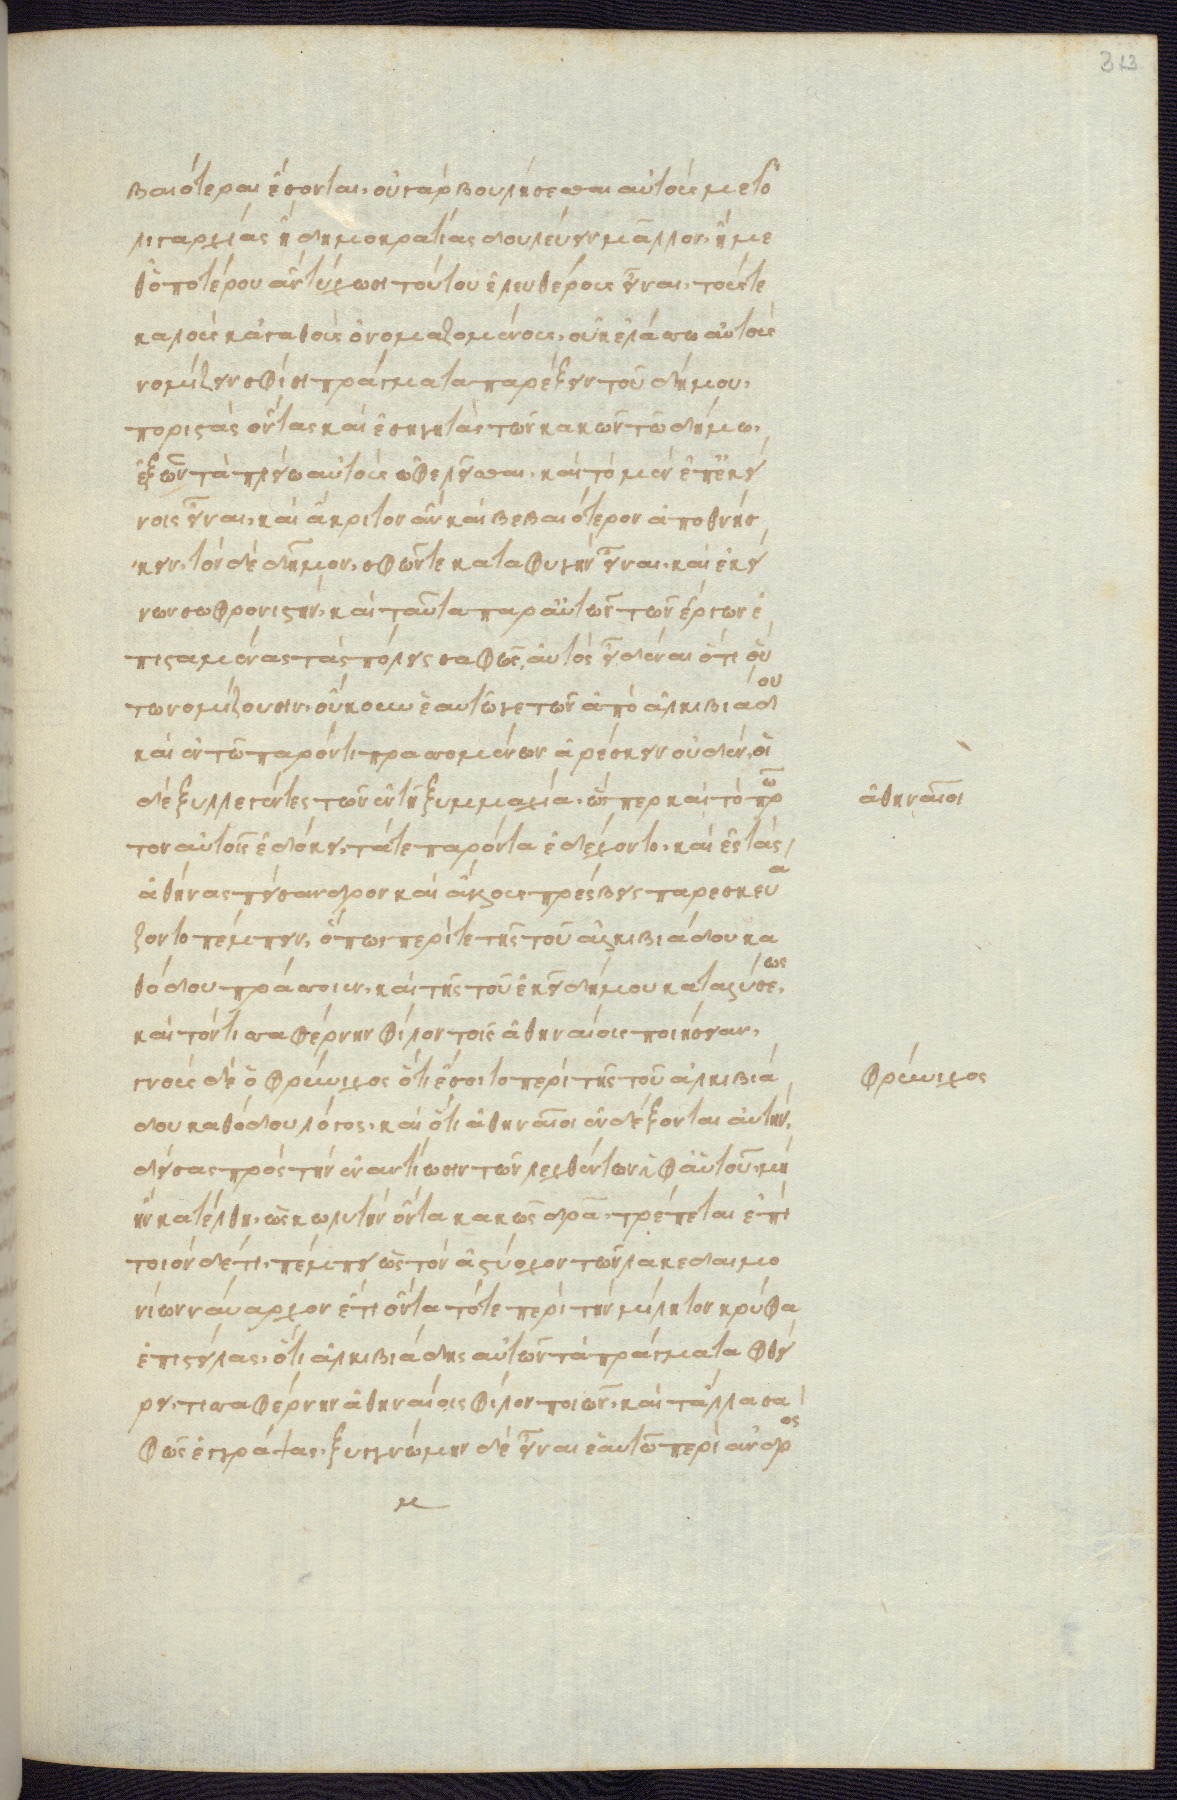 βαιότεραι ἔσονται, οὐ γὰρ βουλήσεσθαι αὐτοὺς μετὀ
λιγαρχίας ἢ δημοκρατίας δουλεύειν μᾶλλον, ἢ με
θὁποτέρου ἂν τύχωσι τούτου ἐλευθέρους εἶναι, τούς τε
καλοὺς κἀγαθοὺς ὀνομαζομένους, οὐκ ἐλάσσω αὐτοὺς
νομίζειν σφίσι πράγματα παρέξειν τοῦ δήμου,
ποριστὰς ὄντας καὶ ἐσηγητὰς τῶν κακῶν τῶ δήμω,
ἐξ ὧν τὰ πλείω αὐτοὺς ὠφελεῖσθαι, καὶ τὸ μὲν ἐπ' ἐκεί
νοις εἶναι, καὶ ἄκριτον ἂν καὶ βεβαιότερον ἀποθνήσ
κειν, τὸν δὲ δῆμον, σφῶν τε καταφυγὴν εἶναι, καὶ ἐκεί
νων σωφρονιστήν, καὶ ταῦτα παρ' αὐτῶν τῶν ἔργων ἐ
πισταμένας τὰς πόλεις σαφῶς, αὐτὸς εἰδέναι ὅτι οὕ
τω νομίζουσιν, οὔκουν ἑαυτῶ γε τῶν ἀπὸ ἀλκιβιάδου
καὶ ἐν τῶ παρόντι πρασσομένων ἀρέσκειν οὐδέν, οἱ
δὲ ξυλλεγέντες τῶν ἐν τῆ ξυμμαχία, ὥσπερ καὶ τὸ πρῶ
τον αὐτοῖς ἐδόκει, τά τε παρόντα ἐδέχοντο, καὶ ἐς τὰς
ἀθήνας πείσανδρον καὶ ἄλλους πρέσβεις παρεσκευά
ζοντο πέμπειν, ὅπως περί τε τῆς τοῦ ἀλκιβιάδου κα
θόδου πράσσοιεν, καὶ τῆς τοῦ ἐκεῖ δήμου καταλύσεως,
καὶ τὸν τισσαφέρνην φίλον τοῖς ἀθηναίοις ποιήσειαν,
γνοὺς δὲ ὁ φρύνιχος ὅτι ἔσοιτο περὶ τῆς τοῦ ἀλκιβιά
δου καθόδου λόγος, καὶ ὅτι ἀθηναῖοι ἐνδέξονται αὐτήν,
δείσας πρὸς τὴν ἐναντίωσιν τῶν λεχθέντων ὑφ' αὑτοῦ, μὴ
ἢν κατέλθη, ὡς κωλυτὴν ὄντα κακῶς δρᾶ, τρέπεται ἐπὶ
τοιόνδε τι, πέμπει ὡς τὸν ἀστύοχον τῶν λακεδαιμο
νίων ναύαρχον ἔτι ὄντα τότε περὶ τὴν μίλητον κρύφα
ἐπιστείλας, ὅτι ἀλκιβιάδης αὐτῶν τὰ πράγματα φθεί
ρει, τισσαφέρνην ἀθηναίοις φίλον ποιῶν, καὶ τἄλλα σα
φῶς ἐγγράψας, ξυγγνώμην δὲ εἶναι ἑαυτῶ περὶ ἀνδρὸς
ἀθηναῖοι
φρύνιχος